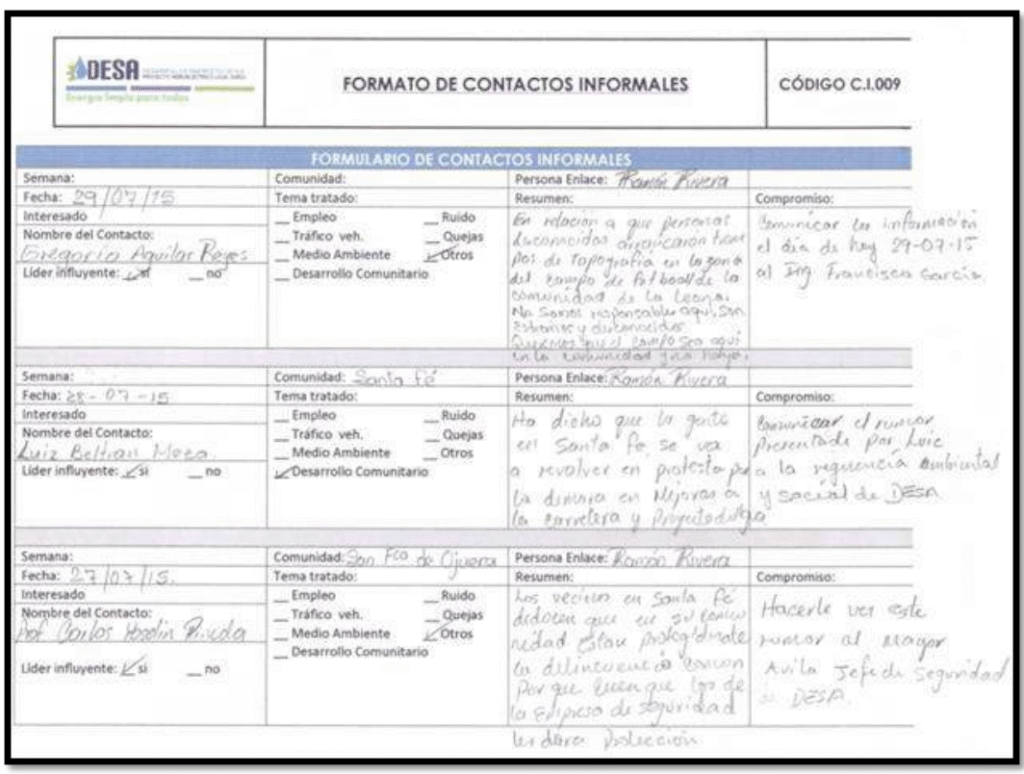 DESA
Energía limpia para todos
FORMATO DE CONTACTOS INFORMALES
CÓDIGO C.I.009
FORMULARIO DE CONTACTOS INFORMALES
Semana:
Comunidad:
Persona Enlace: Ramón Rivera
Fecha: 29/07/15
Tema tratado:
Resumen:
Compromiso:
Interesado
Nombre del Contacto:
Gregorio Aguilar Reyes
Lider influyente: ✓ si __ no
__ Empleo __ Ruido
__ Tráfico veh. __ Quejas
__ Medio Ambiente ✓ Otros
__ Desarrollo Comunitario
En relación a que personas
desconocidas
de topografía en la zona
del campo de fotboll de la
comunidad de la Leona.
No Somos responsables aqui, son
extraños y desconocidos
Queremos que el campo sea aqui
en la comunidad y no
Comunicar la información
el día de hoy 29-07-15
al Ing Francisco García.
Semana:
Comunidad: Santa Fé
Persona Enlace: Ramón Rivera
Fecha: 28-07-15
Tema tratado:
Resumen:
Compromiso:
Interesado
Nombre del Contacto:
Luiz Beltran Meza
Lider influyente: ✓ si __ no
__ Empleo __ Ruido
__ Tráfico veh. __ Quejas
__ Medio Ambiente __ Otros
✓ Desarrollo Comunitario
Ha dicho que la gente
en Santa Fe, se va
a revolver en protesta por
la demora en Mejoras a
la carretera y
Comunicar el rumor
por Luic
a la ambiental
y social de DESA
Semana:
Comunidad: San Fco de Ojuera
Persona Enlace: Ramón Rivera
Fecha: 27/07/15.
Tema tratado:
Resumen:
Compromiso:
Interesado
Nombre del Contacto:
Prof Carlos
Lider influyente: ✓ si __ no
__ Empleo __ Ruido
__ Tráfico veh. __ Quejas
__ Medio Ambiente ✓ Otros
__ Desarrollo Comunitario
Los vecinos en Santa Fé
que en su comu
nidad estan
la delincuencia
Por que que los de
la Empresa de seguridad
les dara Protección
Hacerle ver este
rumor al Mayor
Avila Jefe de Seguridad
de DESA.